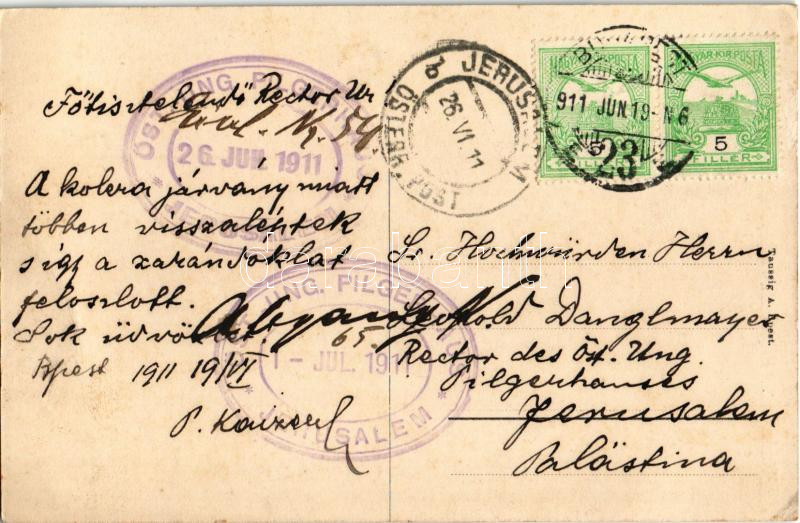 Főtisztelendő Rector Úr
A kolera járvány miatt
többen visszaléptek
s így a zarándoklat
feloszlott.
Sok üdvözlet.
Bpest 1911 19/VI
P. Kaizer
Sr. Hochwürden Herrn
Leopold Danglmayer
Rector des Öst. Ung.
Pilgerhauses
Jerusalem
Palästina
ÖST. UNG. PILGERHAUS
26. JUN. 1911
JERUSALEM
UNG. PILGERHAUS
1 - JUL. 1911
JERUSALEM
65.
JERUSALEM
26 VI 11
ÖSTERR. POST
BUDAPEST
911 JUN.19-N6
23
MAGYAR KIR. POSTA
5
FILLER
MAGYAR KIR. POSTA
5
FILLER
Taussig A. Bpest.
darabanth